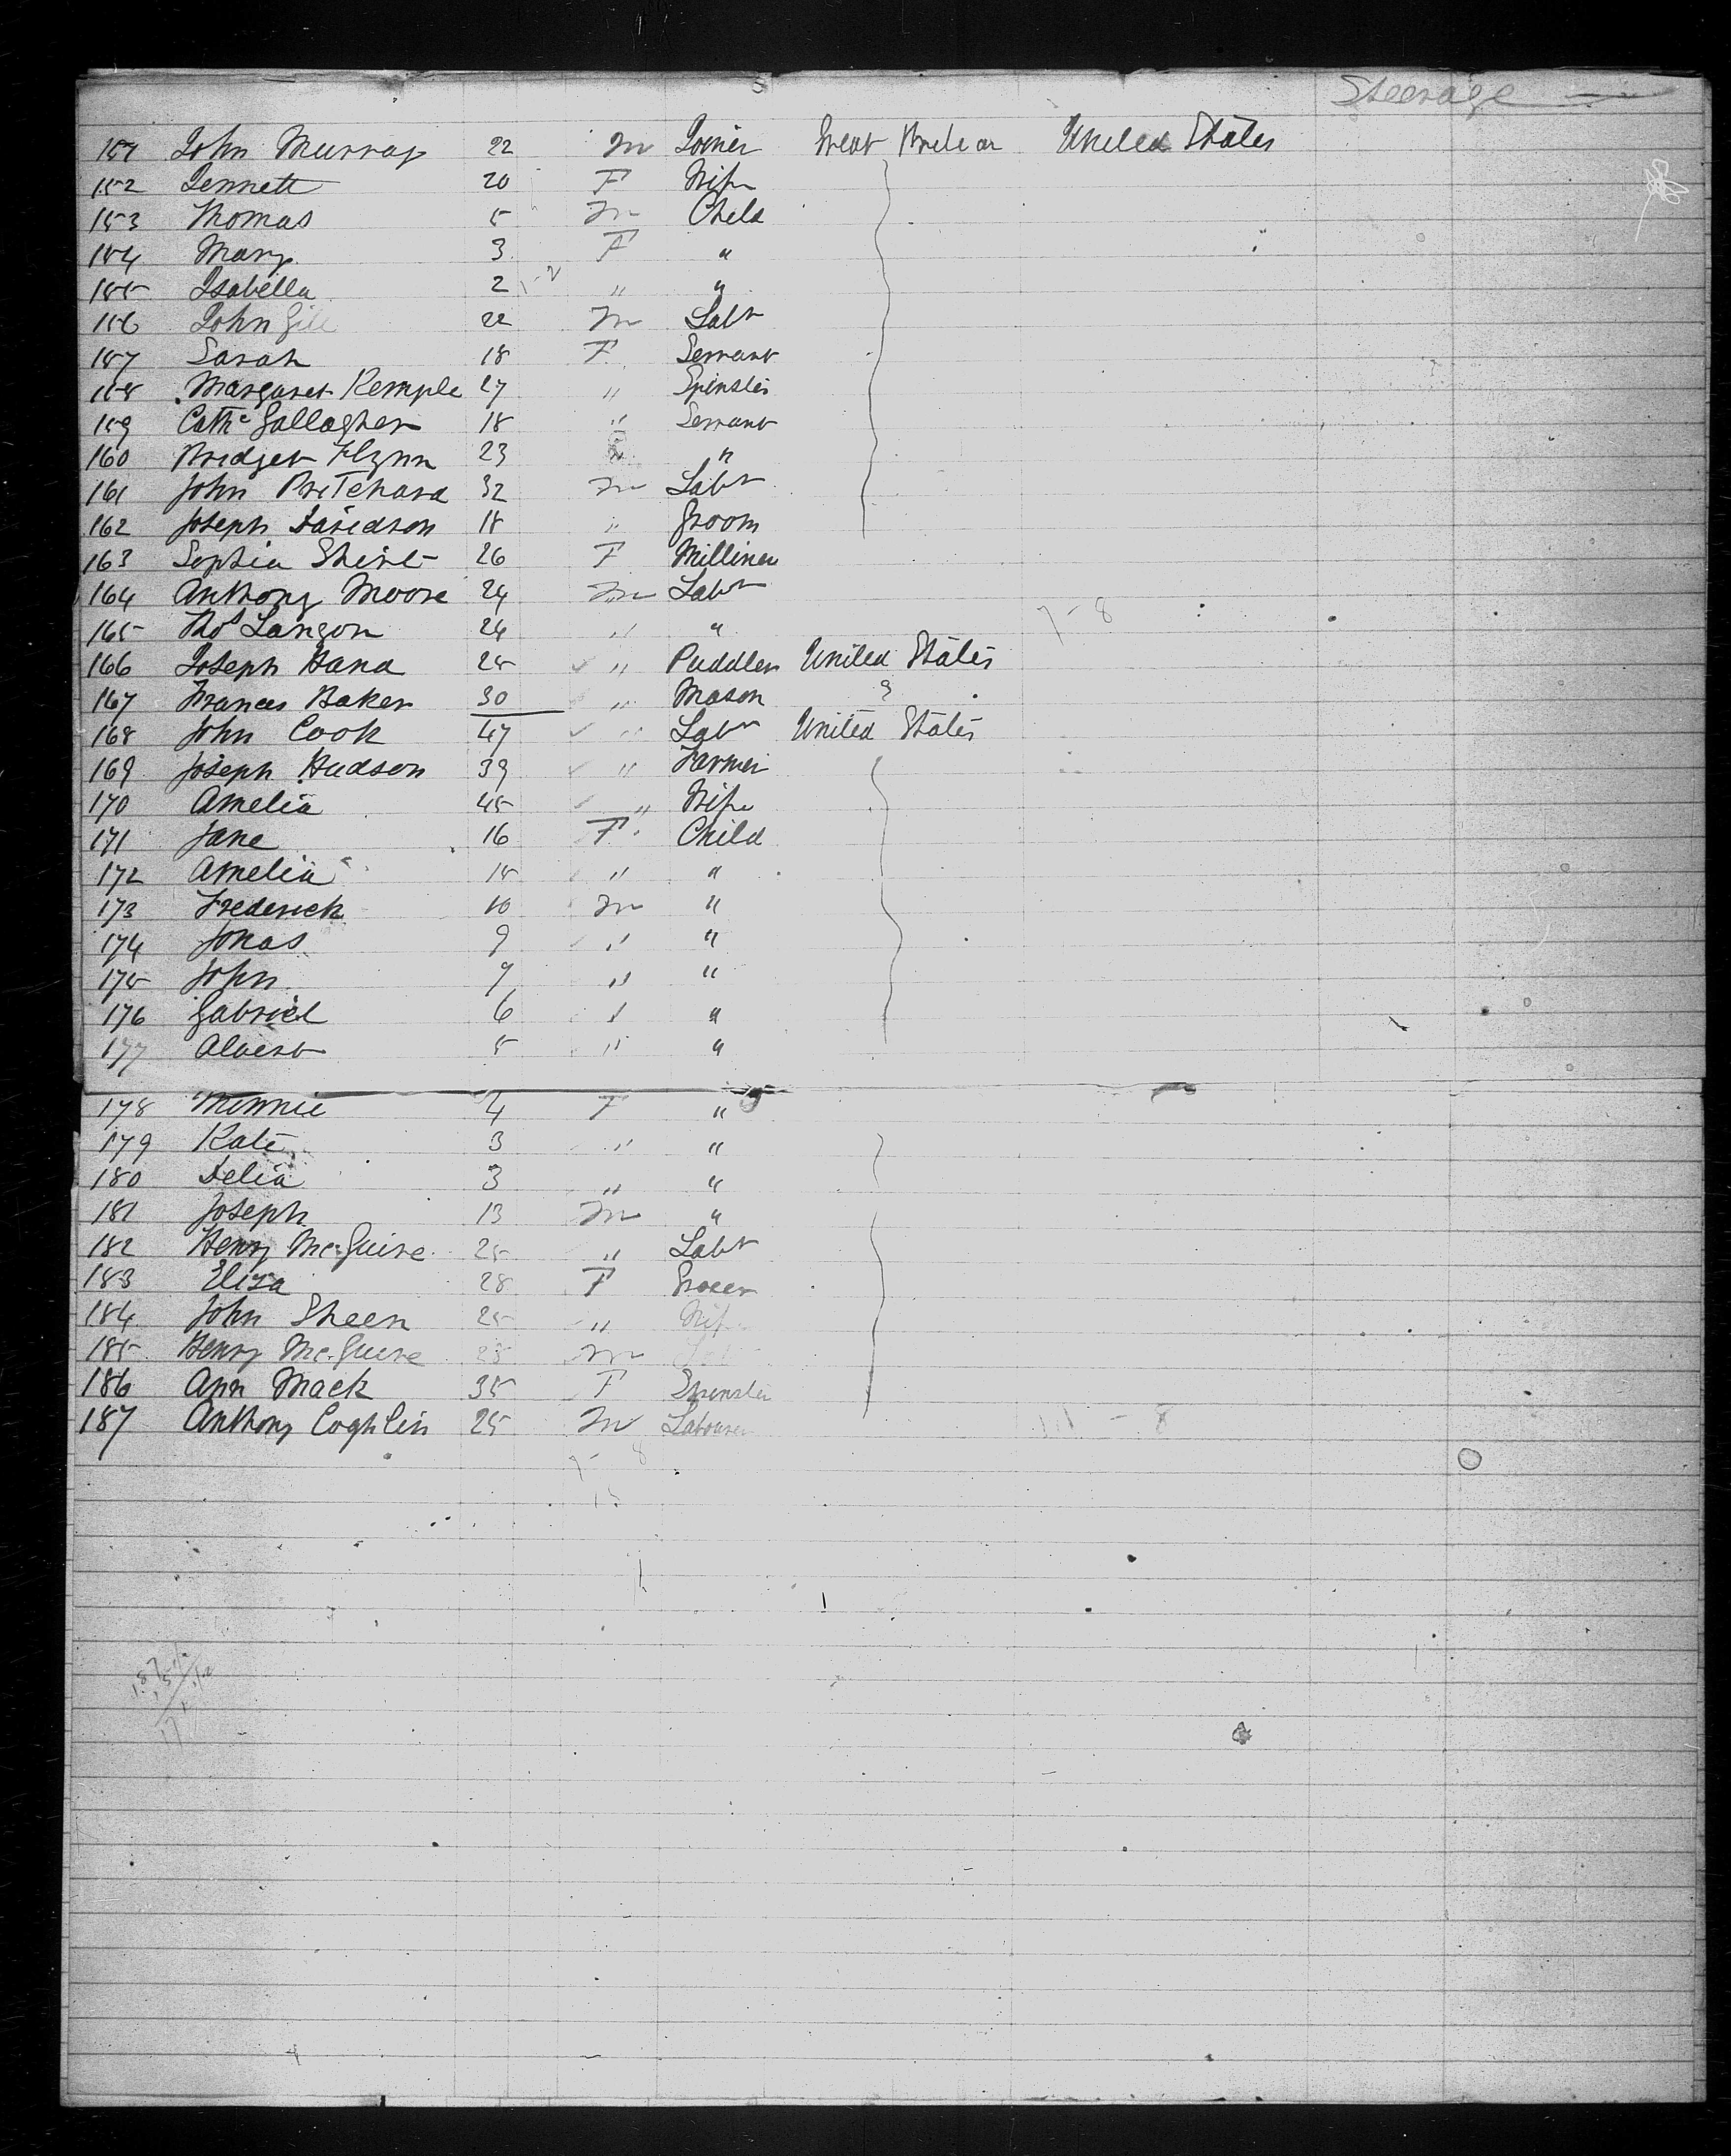 Steerage
151 John Murray 22 m Joiner Great Britian United States
152 Jennett 20 F Wife
153 Thomas 5 m Child
154 Mary 3 F "
155 Isabella 2 " "
156 John Gill 22 m Labr
157 Sarah 18 F Servant
158 Margaret Kemple 27 " Spinster
159 Cathe Gallagher 18 " Servant
160 Bridget Flynn 23 " "
161 John Pritchard 32 m Labr
162 Joseph Davidson 18 " Groom
163 Sophia 26 F Milliner
164 Anthony Moore 24 m Labr
7-8
165 Thos Langon 24 " "
166 Joseph Hand 25 " Puddler United States
167 Frances Baker 30 " Mason
168 John Cook 47 " Labr United States
169 Joseph Hudson 39 " Farmer
170 Amelia 45 " Wife
171 Jane 16 F Child
172 Amelia 15 " "
173 Frederick 10 m "
174 Jonas 9 " "
175 John 7 " "
176 Gabriel 6 " "
177 Albert 5 " "
178 Minnie 4 F "
179 Kate 3 " "
180 Delia 3 " "
181 Joseph 13 m "
182 Henry McGuire 25 " Labr
183 Eliza 28 F Grocer
184 John Sheen 25 " Wife
185 Henry McGuire 28 m
186 Ann Mack 35 F Spinster
187 Anthony Coghlin 25 m Labourer